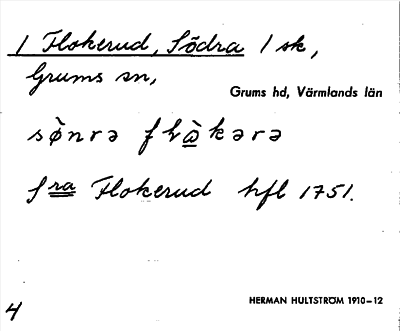 1 Flokerud, Södra 1 sk,
Grums sn,
Grums hd, Värmlands län
sø̀nrə
S ra Flokerud hfl 1751.
HERMAN HULTSTRÖM 1910–12
4